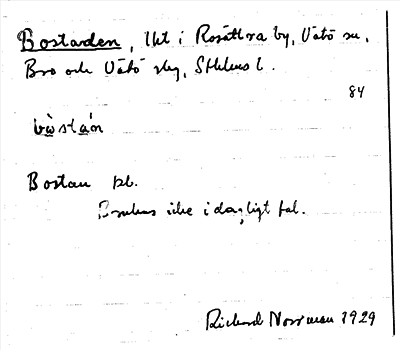 Bostaden, lht i Rosättra by, Vätö sn,
Bro och Vätö skg, Sthlms l.
84
bò̱stá̱n
Bostan pl.
Brukas icke i dagligt tal.
Richard Norrman 1929